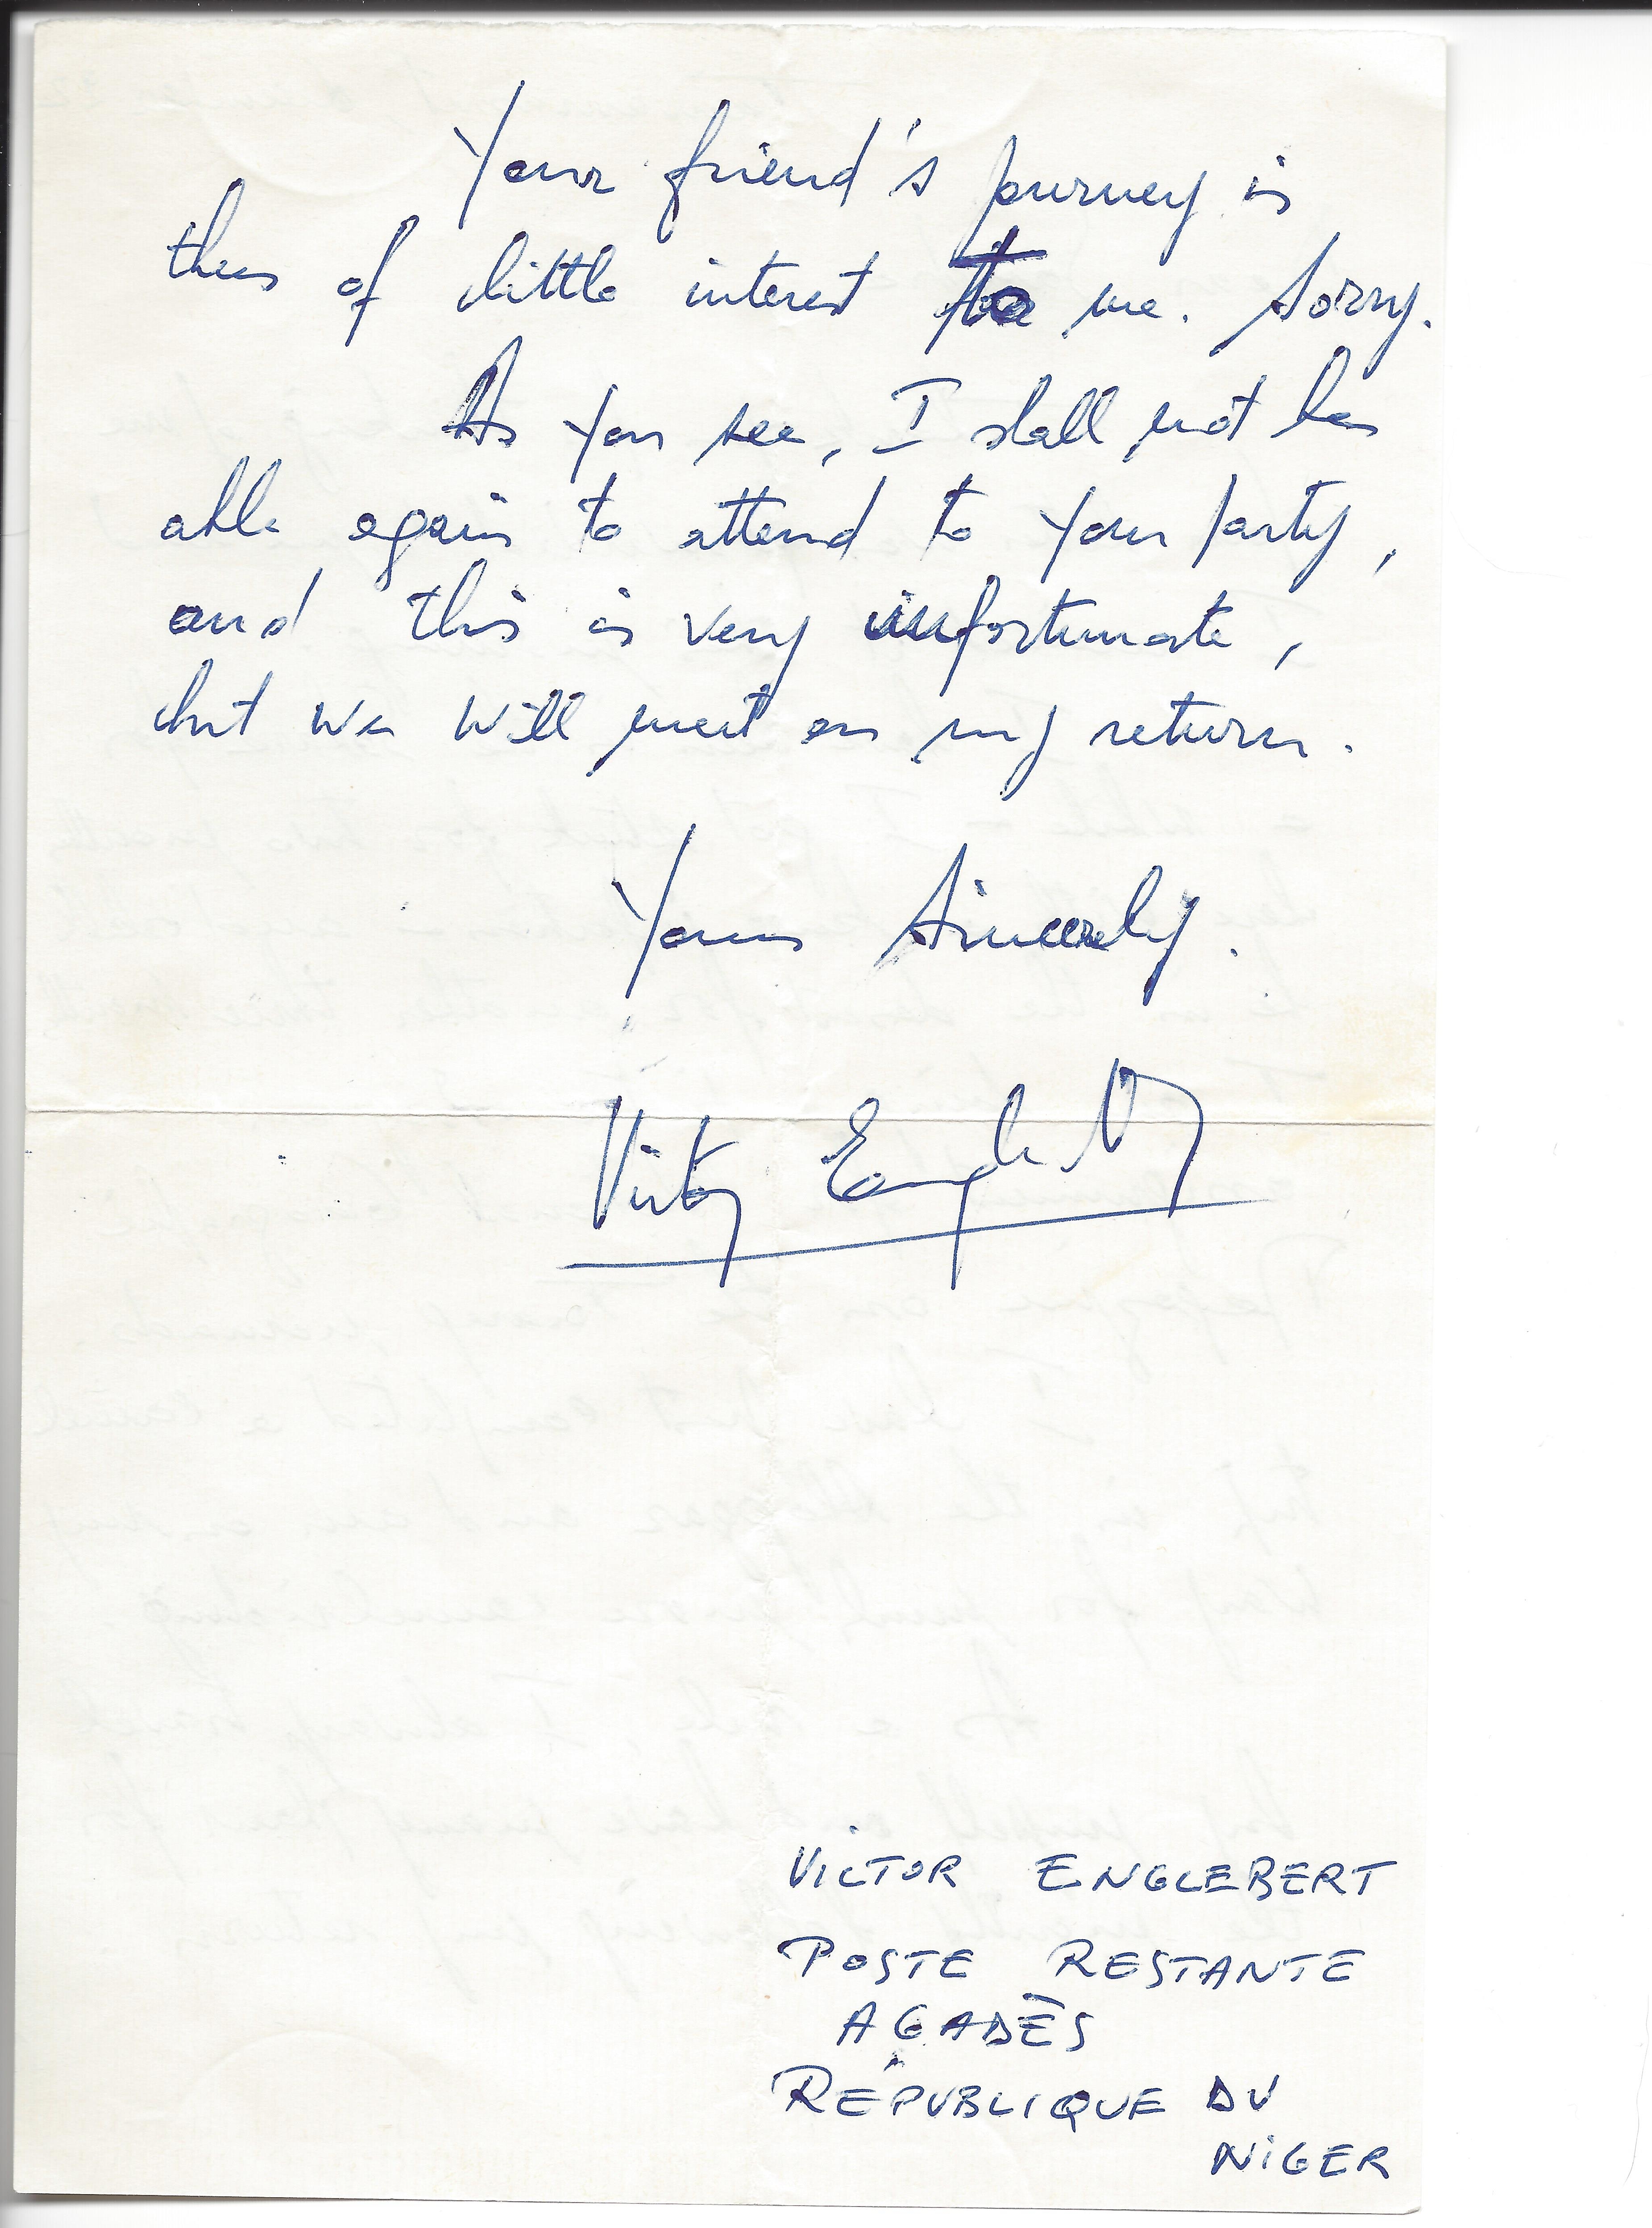 Your friend's journey is
thus of little interest to me. Sorry.
As you see, I shall not be
able again to attend to your party,
and this is very unfortunate,
but we will meet on my return.
Yours Sincerely.
Victor Englebert
VICTOR ENGLEBERT
POSTE RESTANTE
AGADÈS
RÉPUBLIQUE DU
NIGER